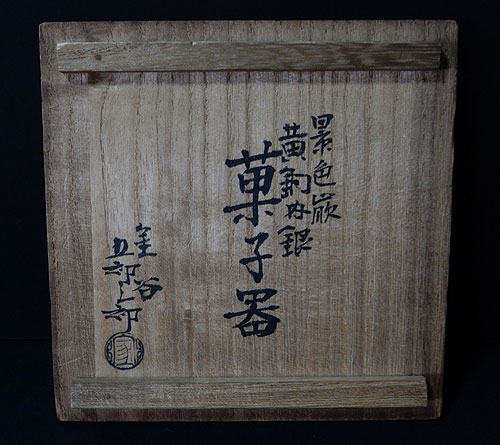 景色嵌
黄銅内銀
菓子器
金谷
五郎三郎